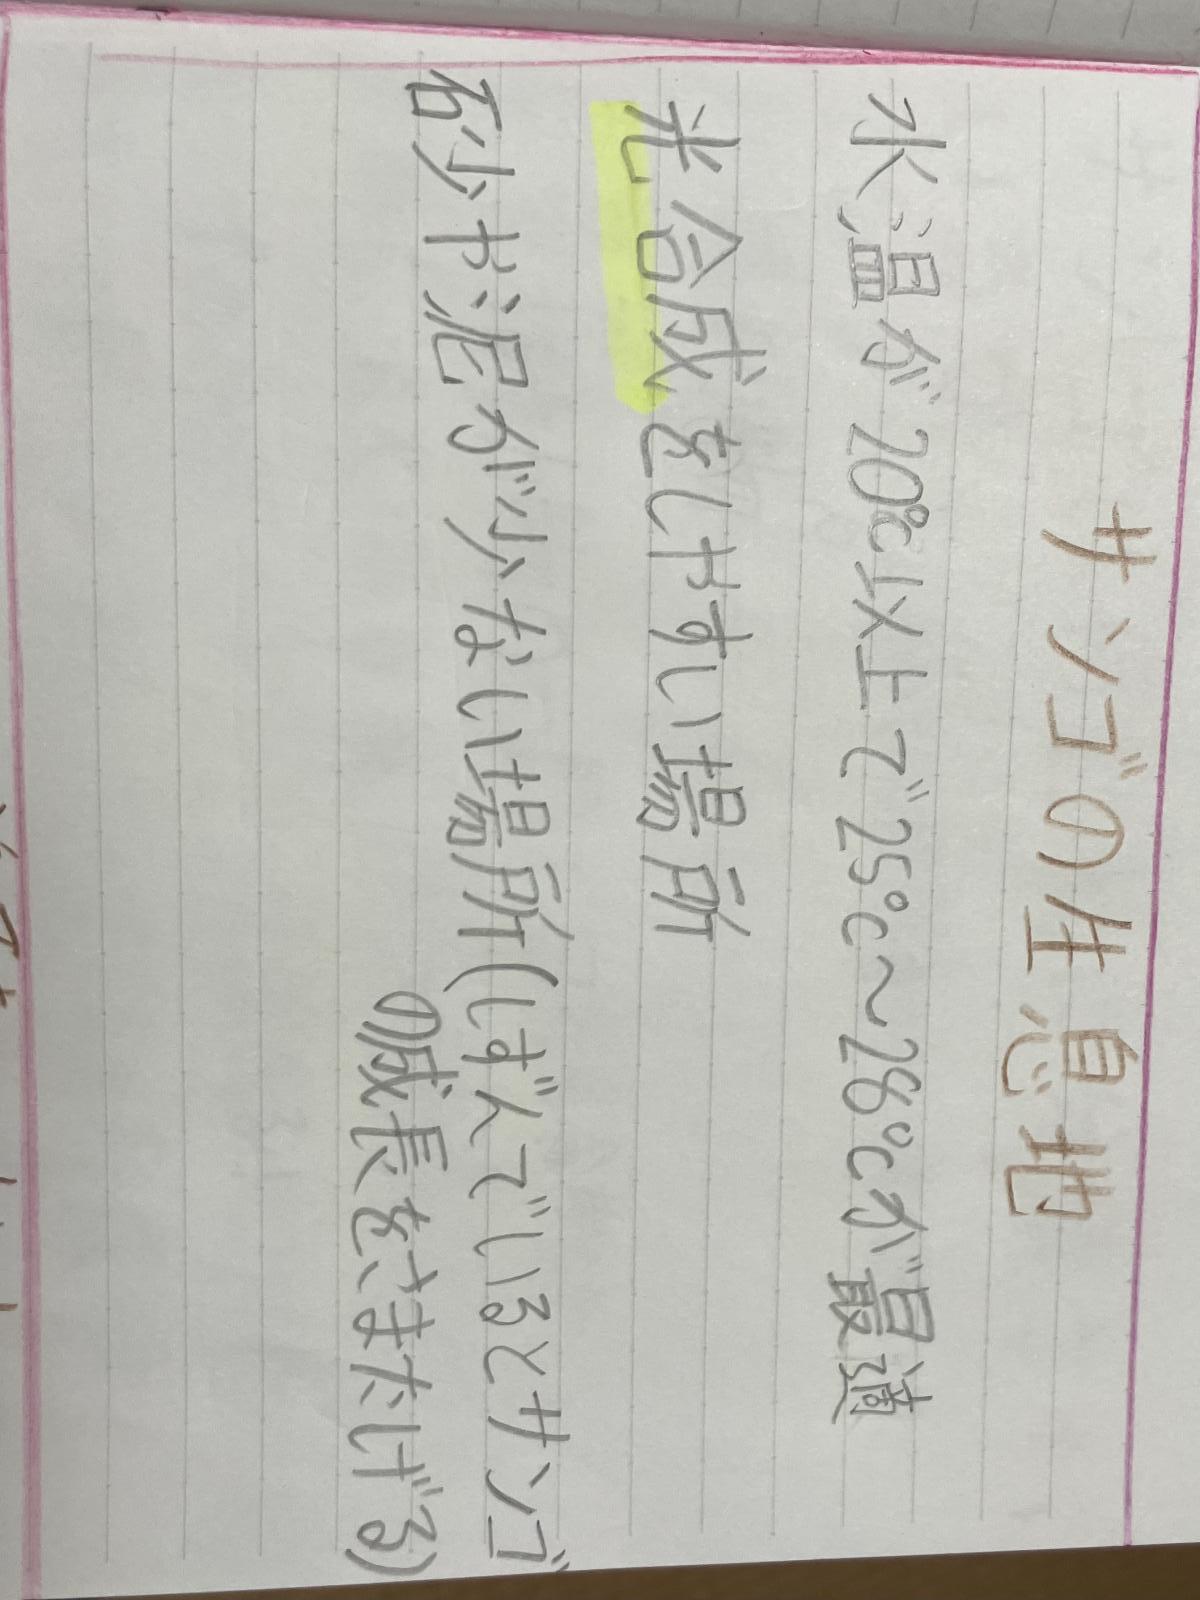 サンゴの生息地
水温が20℃以上で25℃～28℃が最適
光合成をしやすい場所
砂や泥が少ない場所(しずんでいるとサンゴ
の成長をさまたげる)